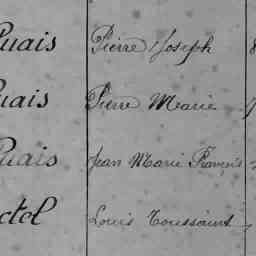 Quais Pierre Joseph
Quais Pierre Marie
Quais Jean Marie François
ctol Louis Toussaint